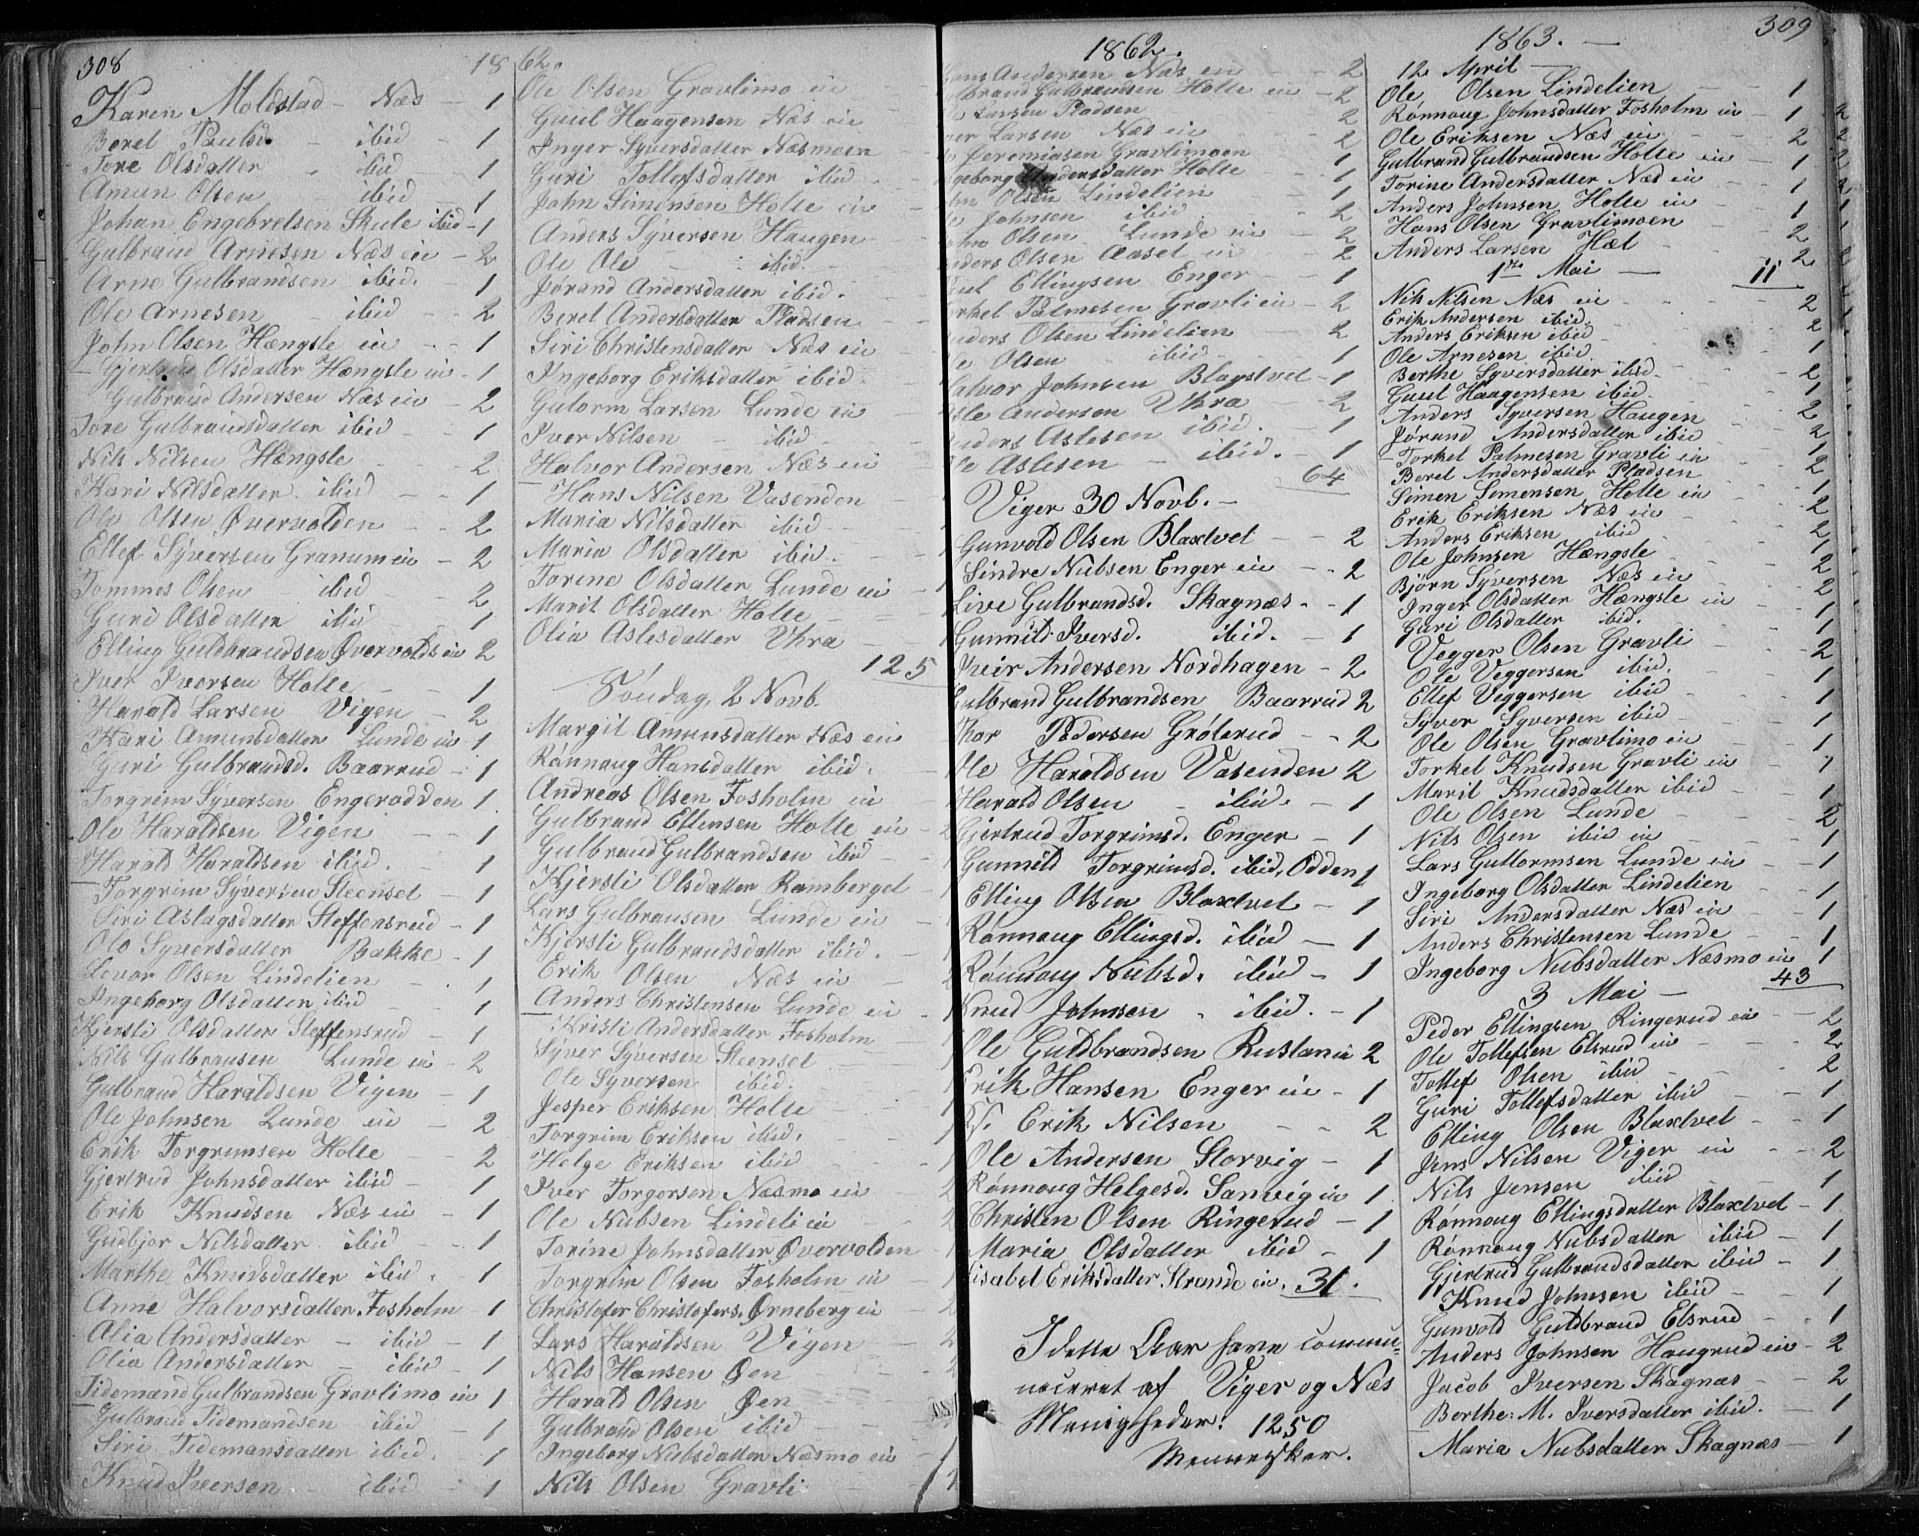 308
1862.
Karen Moldstad - Næs - 1
Beret Paulsd. - ibid - 1
Tore Olsdatter - ibid - 1
Amun Olsen ibid - 1
Johan Engebretsen Skule ibid - 1
Gulbrand Arnesen Næs ein - 2
Arne Gulbrandsen ibid. - 1
Ole Arnesen ibid - 2
John Olsen Hængsle ein - 1
Gjertrud Olsdatter Hængsle ein - 1
Gulbrand Andersen Næs ein - 2
Tore Gulbrandsdatter ibid - 1
Nils Nilsen Hængsle - 2
Kari Nilsdatter ibid - 1
Ole Olsen Øvervolden - 2
Ellef Syversen Granum ein - 2
Tommes Olsen ibid - 2
Guri Olsdatter ibid - 1
Elling Guldbrandsen Øvervolds ein 2
Iver Iversen Holte - 1
Harald Larsen Vigen - 2
Kari Amunsdatter Lunde ein - 1
Guri Gulbrandsd. Baarrud - 1
Torgrim Syversen Engerodden 1
Ole Haraldsen Vigen - 1
Harald Haraldsen ibid. - 1
Torgrim Syversen Steenset - 1
Siri Aslagsdatter Steffensrud - 1
Ole Syversdatter Bakke - 1
Levor Olsen Lindelien - 1
Ingeborg Olsdatter ibid - 1
Kjersti Olsdatter Steffensrud - 1
Nils Gulbransen Lunde ein - 2
Gulbrand Haraldsen Vigen - 1
Ole Johnsen Lunde ein - 2
Erik Torgrimsen Holte - 2
Gjertrud Johnsdatter ibid - 1
Erik Knudsen Næs ein - 1
Gudbjor Nilsdatter ibid - 1
Marthe Knudsdatter ibid. - 1
Anne Halvorsdatter Fosholm 1
Alia Andersdatter - ibid - 1
Olia Andersdatter - ibid - 1
Tidemand Gulbrandsen Gravlimo ein 1
Gulbrand Tidemandsen ibid - 1
Siri Tidemansdatter ibid. 1
Knud Iversen - ibid - 1
Ole Olsen Gravlimo ein
Guul Haagensen Næs ein
Inger Syversdatter Næsmoen
Guri Tollefsdatter ibid.
John Simensen Holte ein
Anders Syversen Haugen
Ole Ole - ibid
Jørand Andersdatter ibid.
Beret Andersdatter Pladsen
Siri Christensdatter Næs ein
Ingeborg Eriksdatter ibid.
Gutorm Larsen Lunde ein
Iver Nilsen - ibid
Halvor Andersen Næs ein
Hans Nilsen Vasenden
Maria Nilsdatter ibid
Maria Olsdatter ibid.
Torine Olsdatter Lunde ein
Marit Olsdatter Holte
Olia Aslesdatter Uhra
125
Søndag, 2 Novb.
Margit Amunsdatter Næs ein
Rønnaug Hansdatter ibid.
Andreas Olsen Fosholm ein
Gulbrand Ellensen Holte ein
Gulbrand Gulbrandsen ibid
Kjersti Olsdatter Ramberget
Lars Gulbransen Lunde ein
Kjersti Gulbrandsdatter ibid.
Erik Olsen Næs ein
Anders Christensen Lunde ein
Kristi Andersdatter Fosholm
Syver Syversen Steenset
Ole Syversen ibid.
Jesper Eriksen Holte
Torgrim Eriksen ibid.
Helge Eriksen ibid
Iver Torgersen Næsmo ein
Ole Nubsen Lindeli ein
Torine Johnsdatter Øvervolden
Torgrim Olsen Fosholm ein
Christofer Christofers. Ørneberg ein
Lars Haraldsen Vigen
Nils Hansen Øen
Harald Olsen Øen
Gulbrand Olsen ibid
Ingeborg Nubsdatter Næsmo ein
Nils Olsen Gravli
1862.
Hans Andersen Næs ein - 2
Gulbrand Gulbrandsen Holte ein - 2
Larsen Pladsen 2
Larsen Næs ein 2
Jeremiasen Gravlimoen 1
Ingeborg Andersdatter Holte 1
Olsen Lindelien 1
Johnsen ibid 2
John Olsen Lunde ein 2
Anders Olsen Aaset ein 2
Ellingsen Enger - 1
Torkel Palmesen Gravli ein - 2
Anders Olsen Lindelien 2
Ole Olsen ibid - 1
Halvor Johnsen Blaxtvet - 1
Asle Andersen Uhra - 2
Anders Aslesen ibid. - 1
Ole Aslesen - ibid. - 1
64
Viger 30 Novb. -
Gunvold Olsen Blaxtvet - 2
Sindre Nubsen Enger ein - 2
Live Gulbrandsd. Skagnæs - 1
Gunnild Iversd. ibid. - 1
Andersen Nordhagen - 2
Gulbrand Gulbrandsen Baarrud 2
Thor Pedersen Grøterud - 2
Ole Haraldsen Vasenden 2
Harald Olsen - ibid. - 1
Gjertrud Torgrimsd. Enger - 1
Gunnild Torgrimsd. ibid, Odden 1
Elling Olsen Blaxtvet - 1
Rønnaug Ellingsd. ibid - 1
Rønnaug Nubsd. ibid - 1
Knud Johnsen ibid. - 1
Ole Guldbrandsen Rustan ein 2
Erik Hansen Enger ein - 1
Erik Nilsen - 2
Ole Andersen Storvig - 1
Rønnoug Helgesd. Sanvig ein 1
Christen Olsen Ringerud - 1
Maria Olsdatter ibid - 1
Lisabet Eriksdatter Strande ein. 31.
I dette Aar have commu-
niceret af Viger og Næs
Menigheder: 1250
Mennesker.
309
1863. -
12 April -
Ole Olsen Lindelien - 1
Rønnaug Johnsdatter Fosholm ein - 1
Ole Eriksen Næs ein - 2
Gulbrand Gulbrandsen Holte ein - 1
Torine Andersdatter Næs ein - 1
Anders Johnsen Holte ein - 1
Hans Olsen Gravlimoen - 2
Anders Larsen Hæt - 2
1ste Mai - 11
Nils Nilsen Næs ein - 2
Erik Andersen ibid. - 2
Anders Eriksen ibid - 1
Ole Arnesen ibid. - 2
Berthe Syversdatter ibid. - 1
Guul Haagensen ibid. - 2
Anders Syversen Haugen 2
Jørand Andersdatter ibid 1
Torkel Palmesen Gravli ein 2
Beret Andersdatter Pladsen 1
Simen Simensen Holte ein 2
Erik Eriksen Næs ein 2
Anders Eriksen ibid 1
Ole Johnsen Hængsle 2
Bjørn Syversen Næs ein 2
Inger Olsdatter Hængsle ein 1
Guri Olsdatter ibid. 1
Vegger Olsen Gravli - 2
Ole Veggersen ibid. - 1
Ellef Veggersen ibid - 1
Syver Syversen ibid - 1
Ole Olsen Gravlimo ein - 1
Torkel Knudsen Gravli ein - 1
Marit Knudsdatter ibid - 1
Ole Olsen Lunde - 2
Nils Olsen ibid ein - 1
Lars Guttormsen Lunde ein - 1
Ingeborg Olsdatter Lindelien - 1
Siri Andersdatter Næs ein - 1
Anders Christensen Lunde - 1
Ingeborg Nubsdatter Næsmo ein 1
43
3 Mai -
Peder Ellingsen Ringerud ein - 2
Ole Tollefsen Elsrud ein - 2
Tollef Olsen ibid - 2
Guri Tollefsdatter ibid - 1
Elling Olsen Blaxtvet - 1
Jens Nilsen Viger ein - 2
Nils Jensen ibid - 1
Rønnoug Ellingsdatter Blaxtvet - 1
Rønnoug Nubsdatter ibid - 1
Gjertrud Gulbrandsdatter ibid - 1
Knud Johnsen ibid - 1
Gunvold Guldbrand Elsrud - 1
Anders Johnsen Haugrud ein - 2
Jacob Iversen Skagnæs - 2
Berthe M. Iversdatter ibid. - 1
Maria Nubsdatter Skagnæs - 1